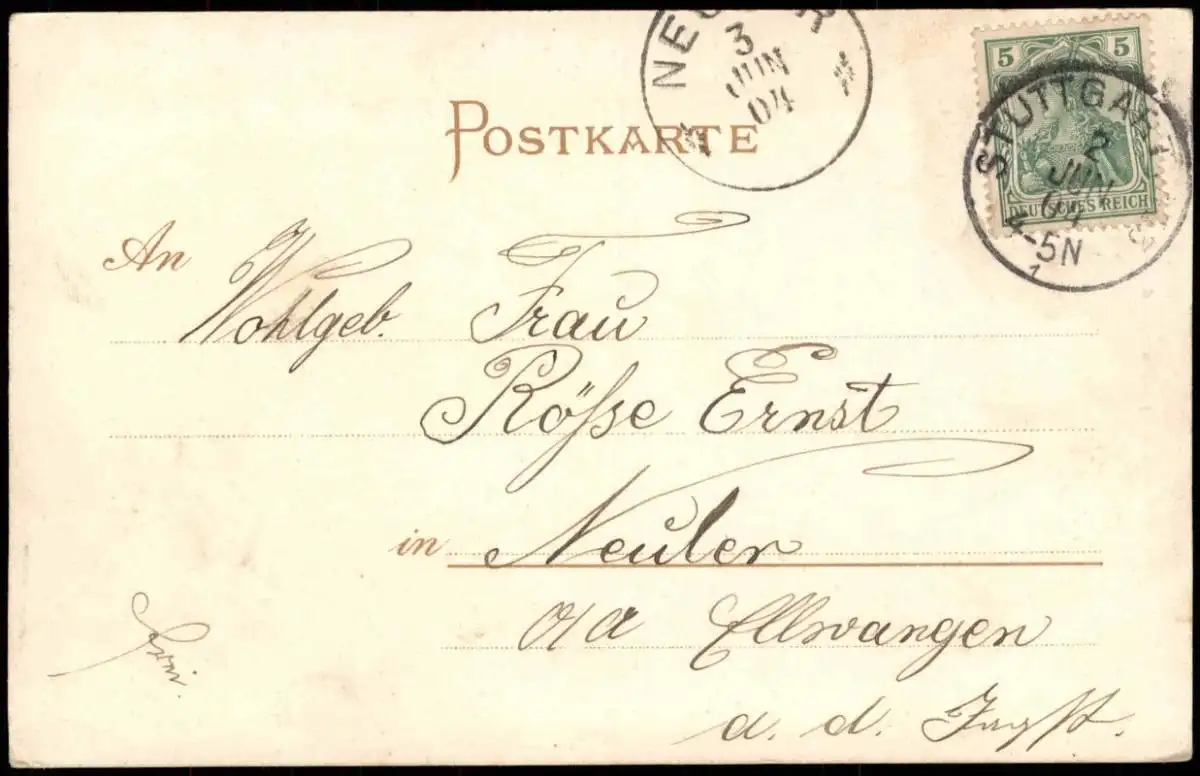 POSTKARTE
NEULER
3
JUN
04
5 5
DEUTSCHES REICH
STUTTGART
2
JUN
04
4-5N
1
An
Wohlgeb. Frau
Röße Ernst
in Neuler
O/A Ellwangen
a. d. Jagst.